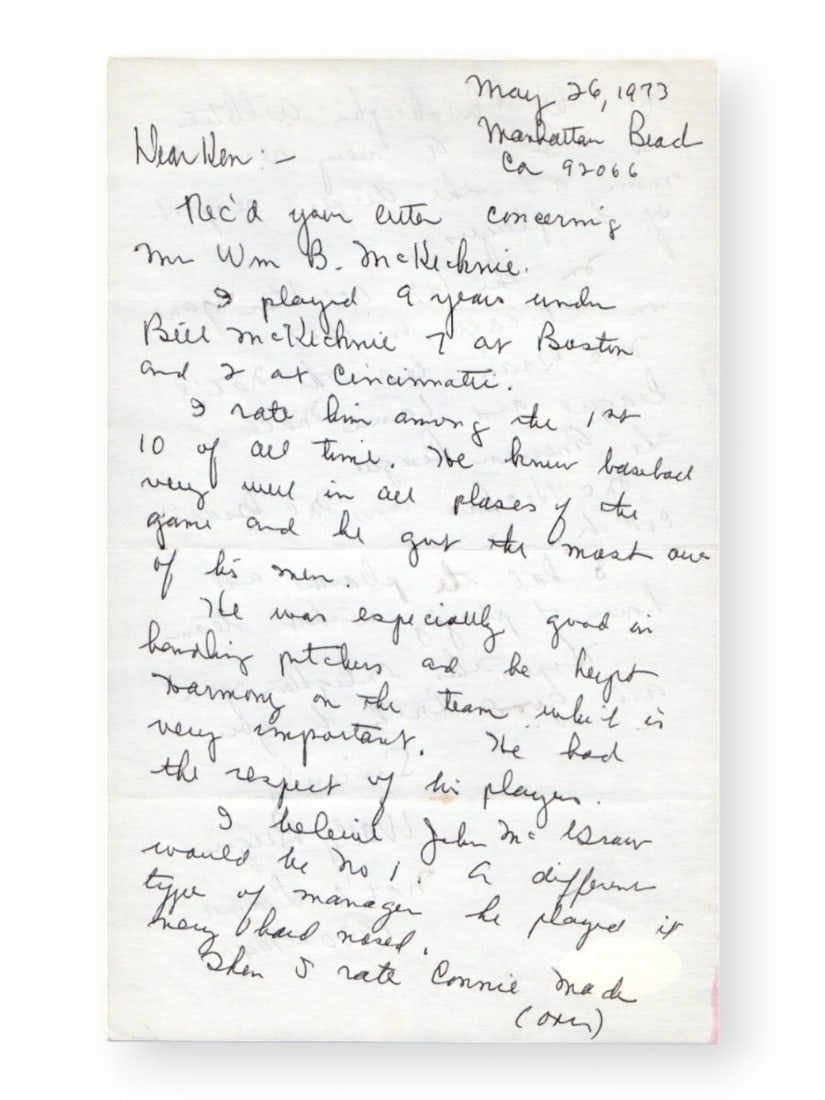 May 26, 1973
Manhattan Beach
Ca 92066
Dear Ken:-
Rec'd your letter concerning
Mr Wm B. McKechnie.
I played 9 years under
Bill McKechnie 7 at Boston
and 2 at Cincinnatti.
I rate him among the 1st
10 of all time. He knew baseball
very well in all phases of the
game and he got the most out
of his men.
He was especially good in
handling pitchers and he kept
harmony on the team which is
very important. He had
the respect of his players.
I beleive John McGraw
would be No 1. A different
type of manager he played it
very hard nosed.
Then I rate Connie Mack
(over)